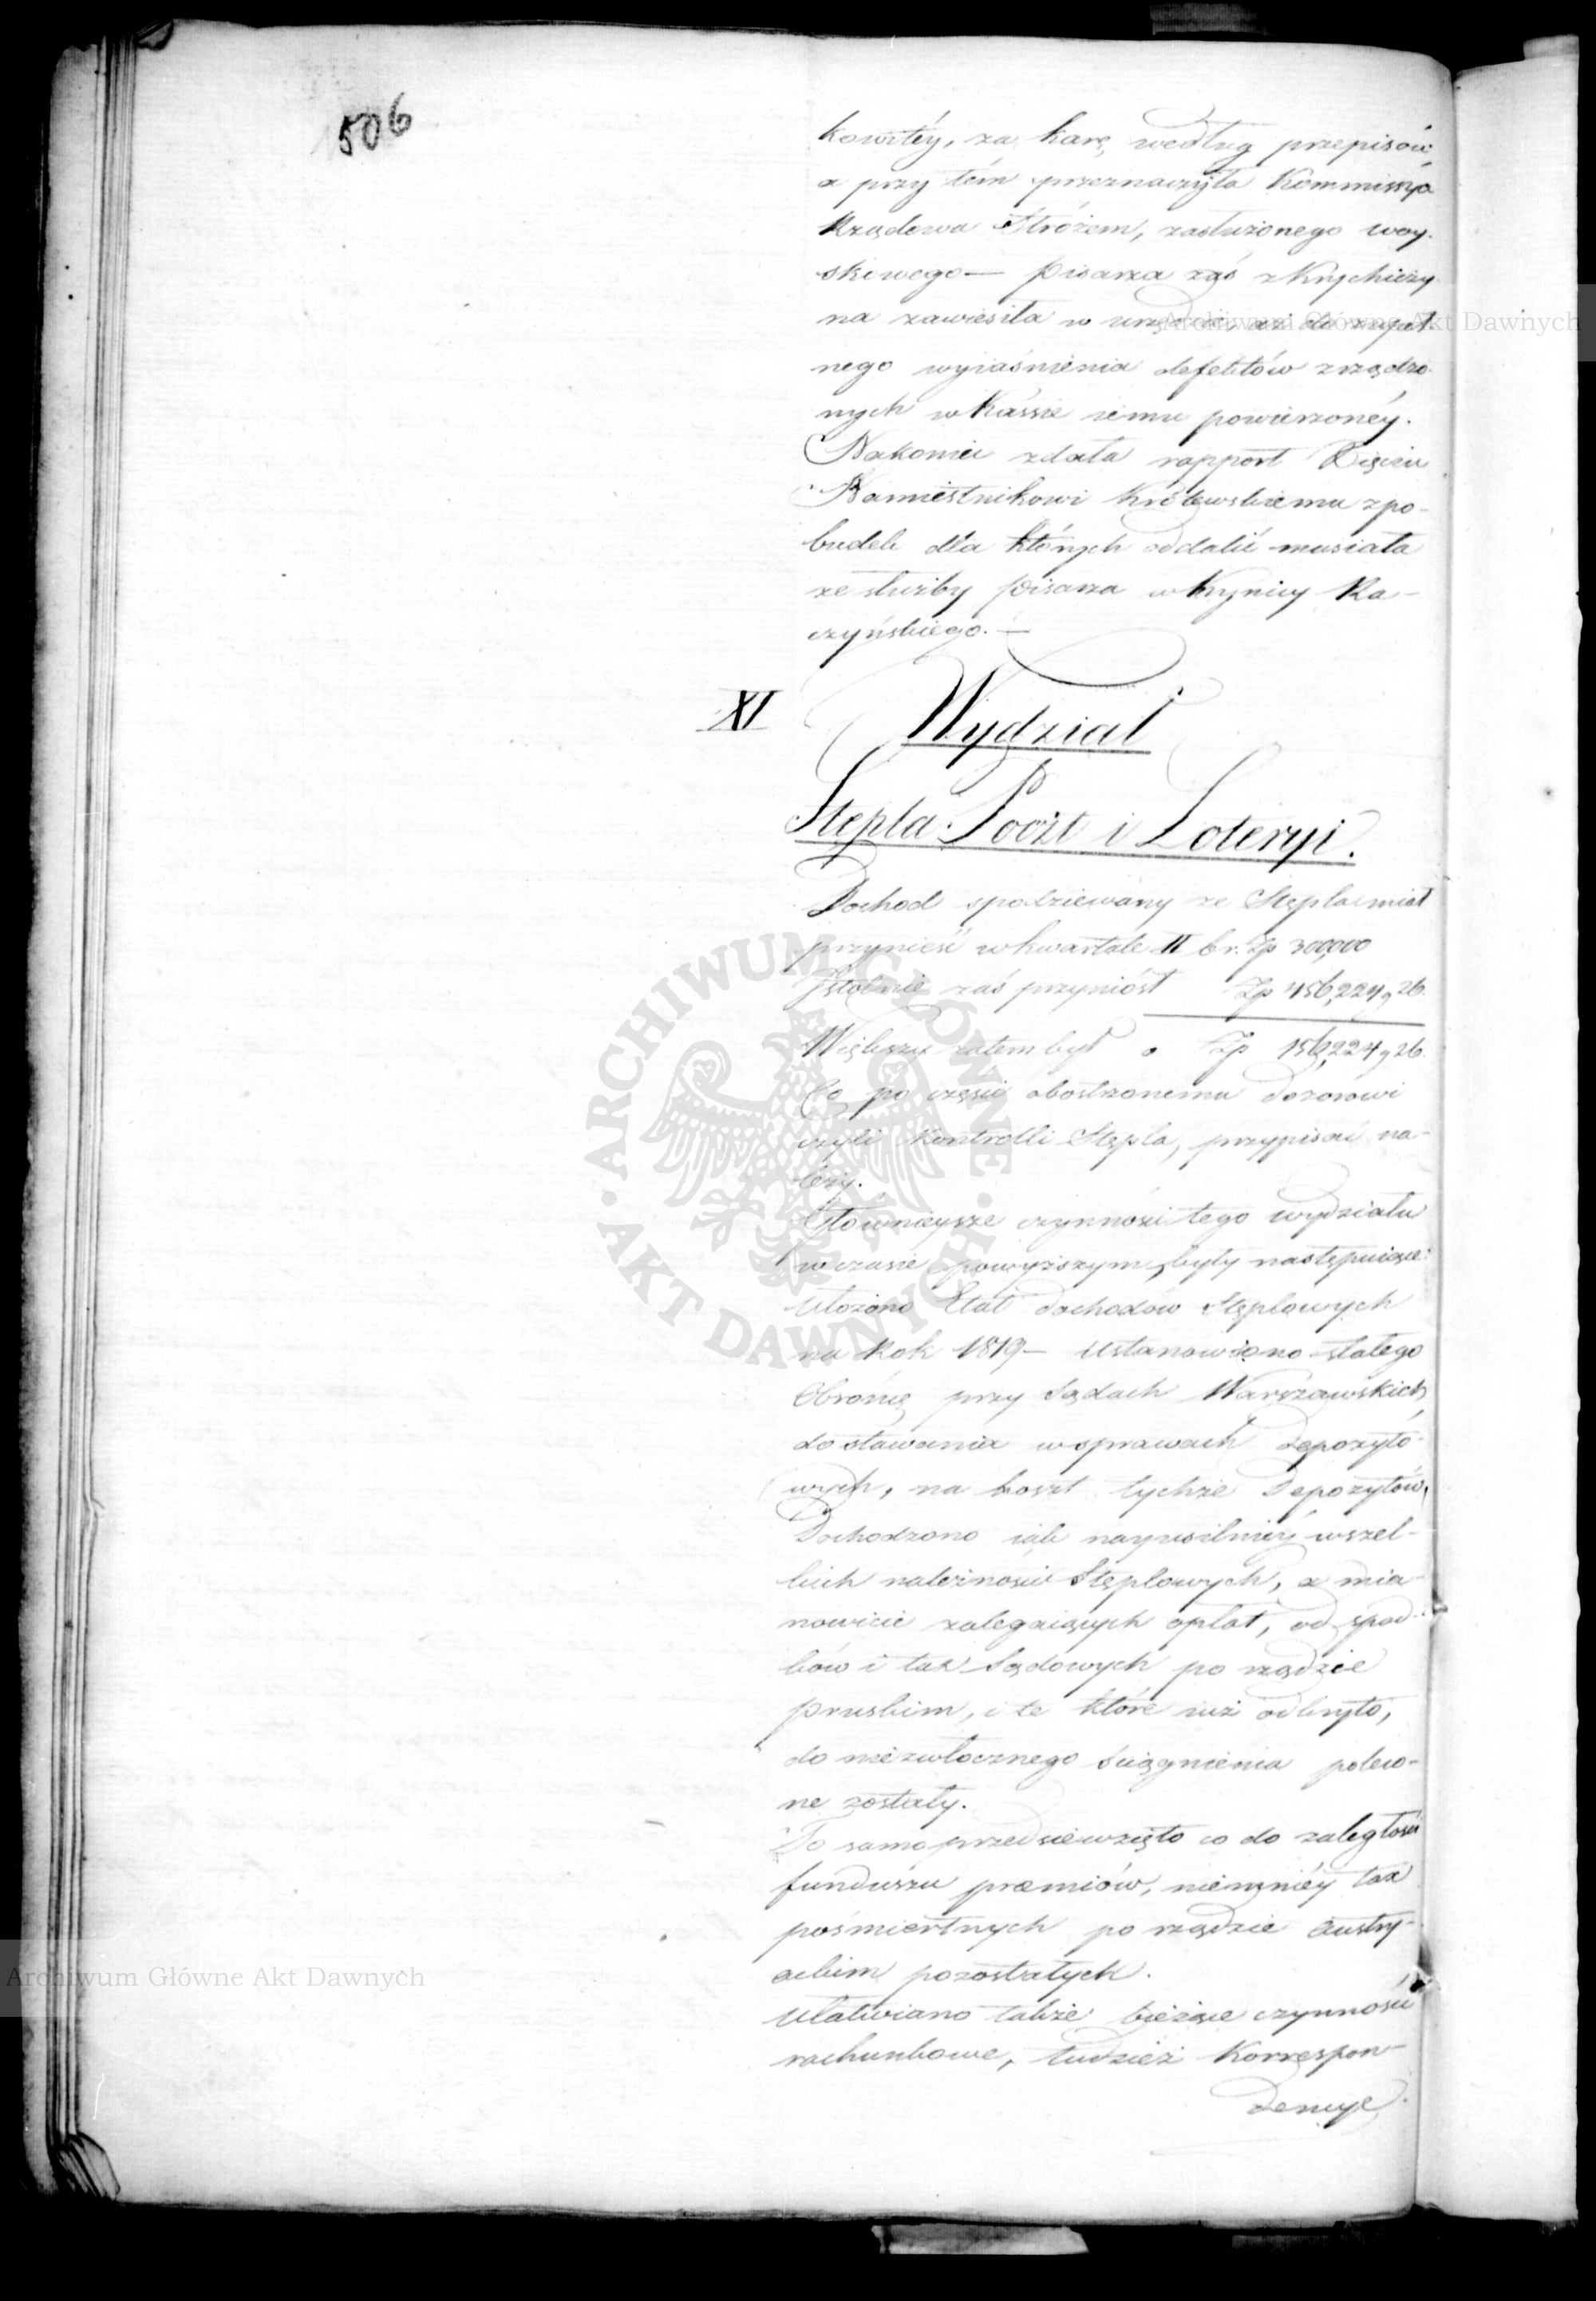 506
kowitéy, za karę według przepisów
a przy tém przeznaczyła Kommissya
Rządowa Stróżem, zasłużonego woy-
skowego — Pisarza zaś z Krychiczy
na zawiesiła w urzędzie, aż do zupeł
nego wyiaśnienia defektów zrządzo
nych w Kassie iemu powierzonéy.
Nakoniec zdała rapport Xięciu
Namiestnikowi Królewskiemu z po-
budek dla których oddalić musiała
ze służby Pisarza w Krynicy Ra-
czyńskiego. —
XI Wydział
Stępla Poczt i Loteryi.
Dochod spodziewany ze Stępla miał
przynieść w kwartale II b.r. Zp 300,000
Istotnie zaś przyniósł Zp 456,224 g 26.
Większy zatem był o Zp 156,224 g 26.
Co po części obostrzonemu dozorowi
czyli Kontrolli Stępla, przypisać na-
leży.
Głównieysze czynności tego wydziału
w czasie powyższym, były następuiące:
Ułożono Etat dochodów Stęplowych
na Rok 1819 — Ustanowiono stałego
Obrońcę przy Sądach Warszawskich,
do stawania w sprawach Depozyto-
wych, na koszt tychże Depozytów,
Dochodzono iak nayusilniéy wszel-
kich należności Stęplowych, a mia-
nowicie zalegaiących opłat, od spad-
ków i tax Sądowych po rządzie
Pruskim, i te które iuż odkryto,
do niezwłocznego ściągnienia poleco-
ne zostały.
To samo przedsięwzięto co do zaległości
funduszu præmiów, niemniéy tax
pośmiertnych po rządzie Austry-
ackim pozostałych.
Ułatwiano także bieżące czynności
rachunkowe, tudzież Korrespon-
dencye
Archiwum Główne Akt Dawnych
Archiwum Główne Akt Dawnych
ARCHIWUM GŁÓWNE · AKT DAWNYCH ·